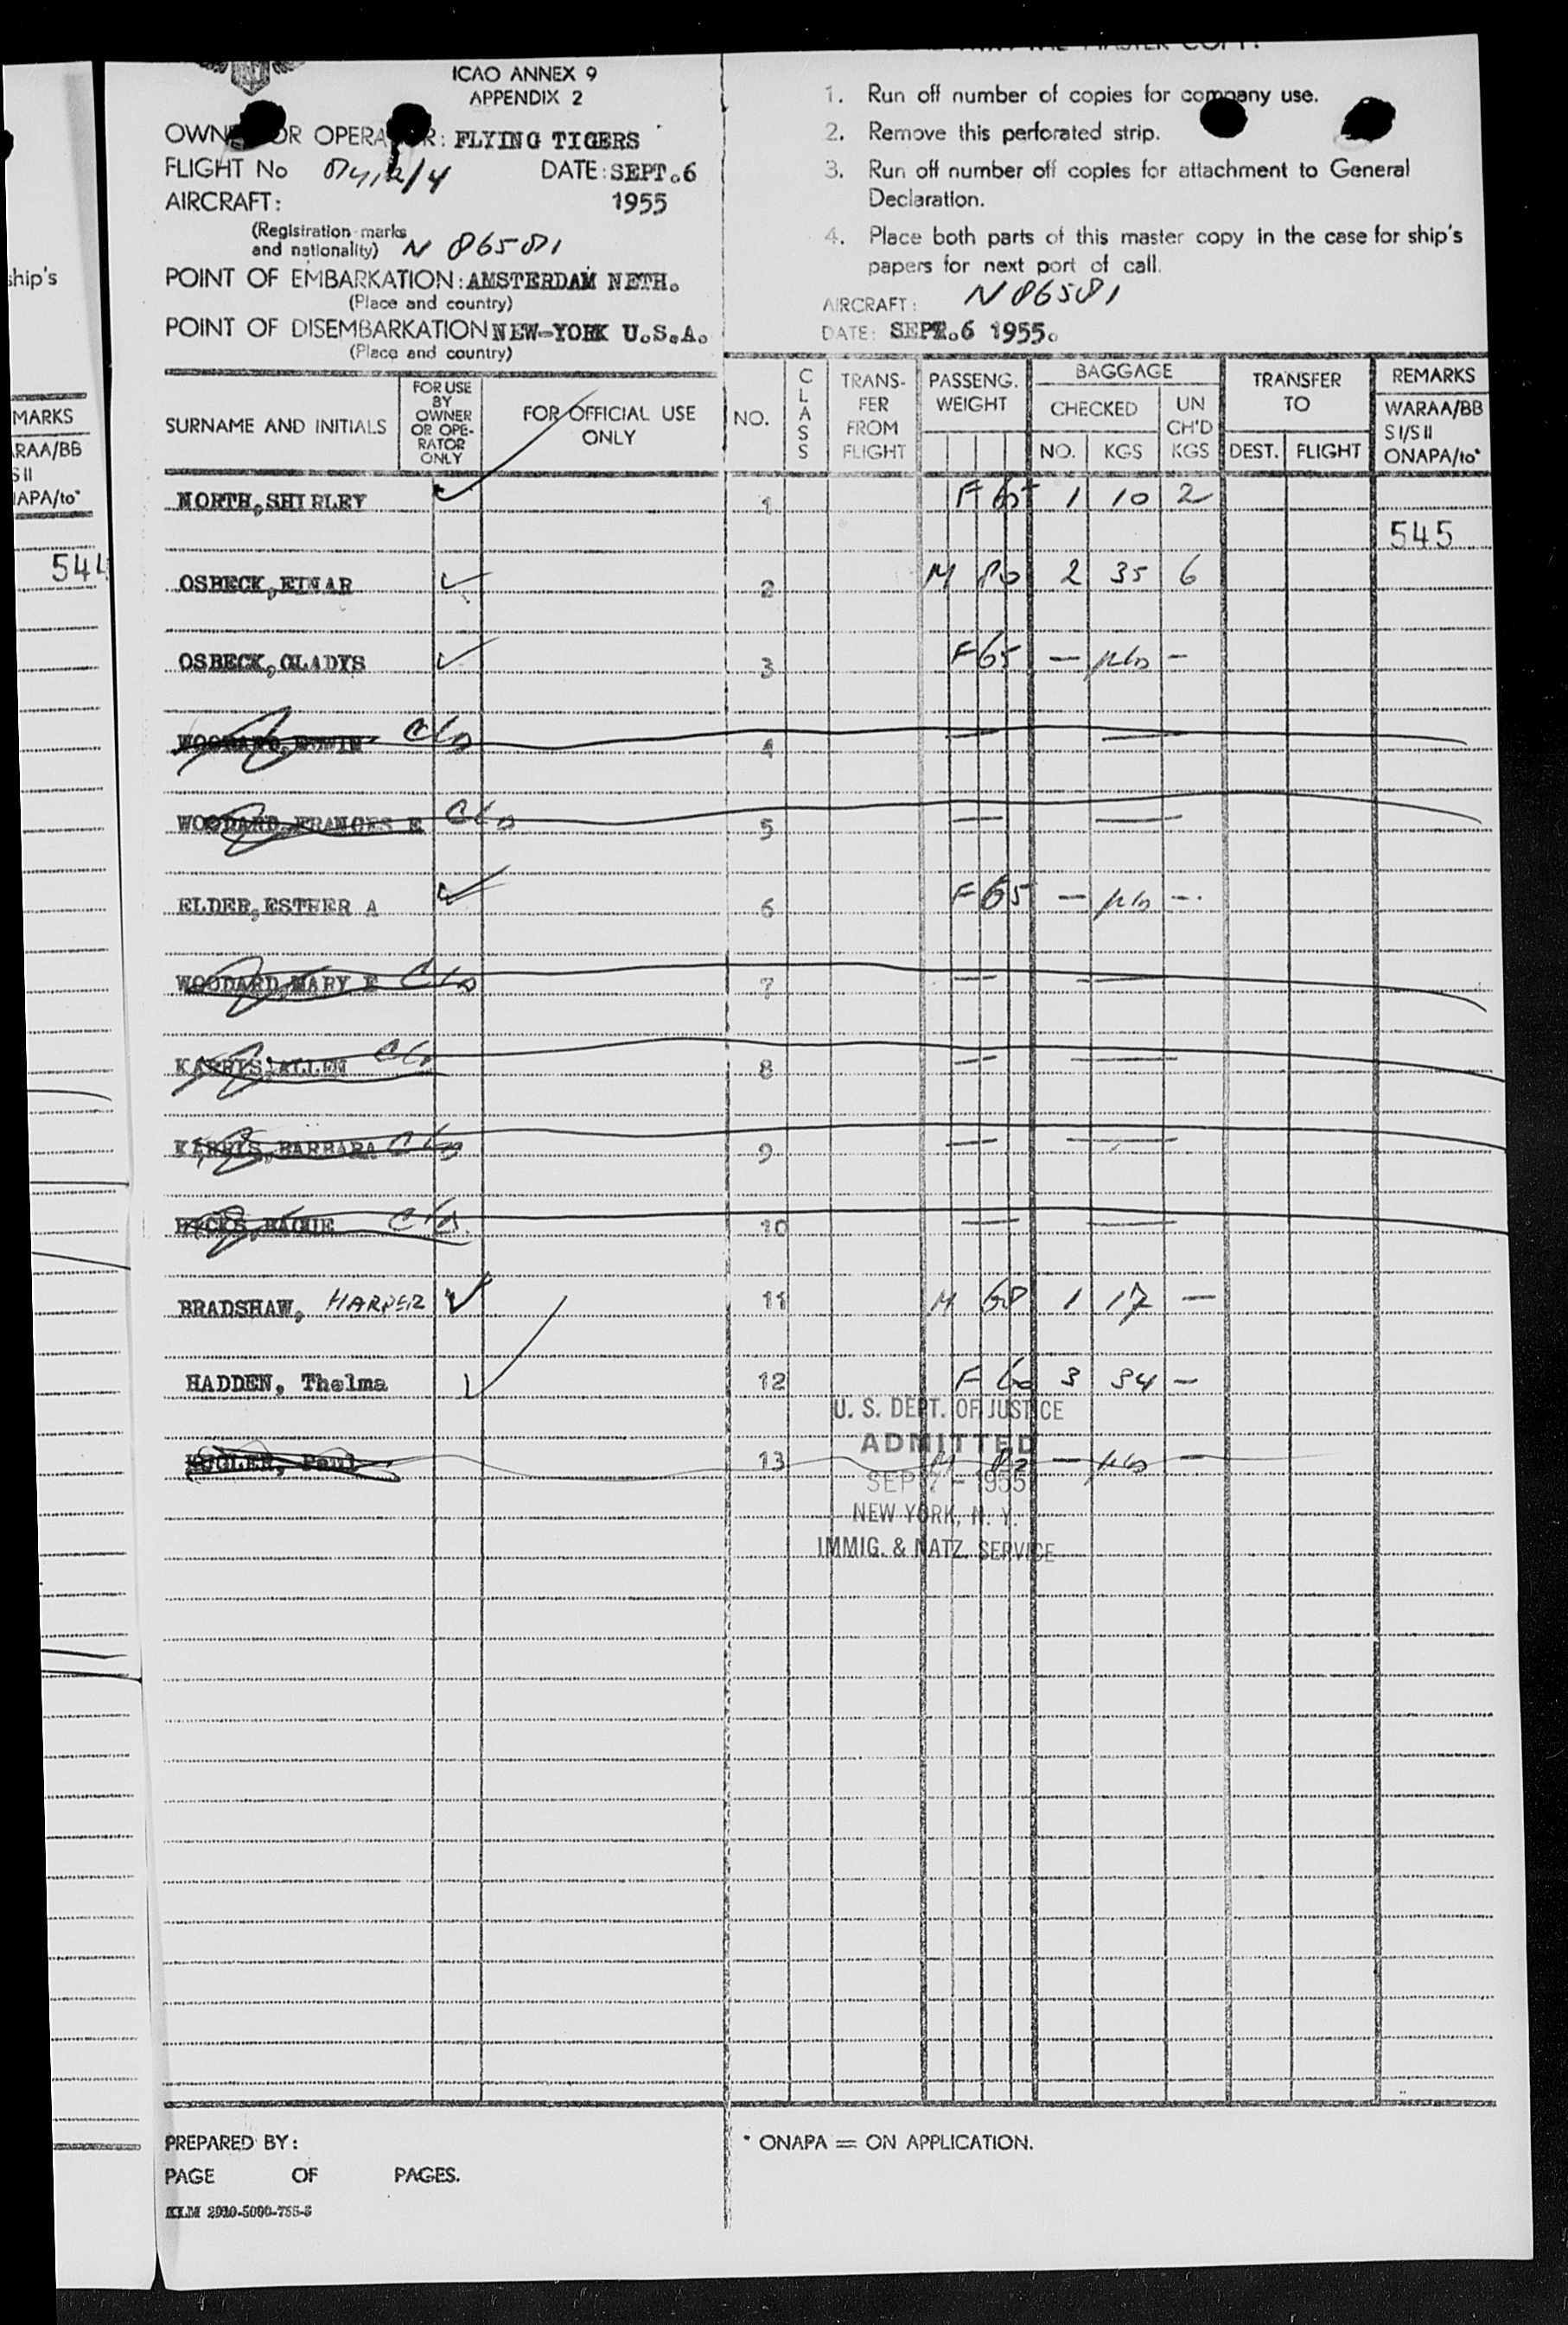 ICAO ANNEX 9
APPENDIX 2
OWNER OR OPERATOR: FLYING TIGERS
FLIGHT No DATE: SEPT.6
AIRCRAFT: 1955
(Registration marks
and nationality) N 86581
POINT OF EMBARKATION: AMSTERDAM NETH.
(Place and country)
POINT OF DISEMBARKATION NEW-YORK U.S.A.
(Place and country)
1. Run off number of copies for company use.
2. Remove this perforated strip.
3. Run off number off copies for attachment to General
Declaration.
4. Place both parts of this master copy in the case for ship's
papers for next port of call.
AIRCRAFT: N 86581
DATE: SEPT.6 1955.
SURNAME AND INITIALS
FOR USE
BY
OWNER
OR OPE-
RATOR
ONLY
FOR OFFICIAL USE
ONLY
NO.
CLASS
TRANS-
FER
FROM
FLIGHT
PASSENG.
WEIGHT
BAGGAGE
CHECKED
NO. KGS
UN
CH'D
KGS
TRANSFER
TO
DEST. FLIGHT
REMARKS
WARAA/BB
S I/S II
ONAPA/to*
NORTH, SHIRLEY 1 F 65 1 10 2
545
OSBECK, EINAR 2 M 80 2 35 6
OSBECK, GLADYS 3 F 65 — —
4 — —
WOODARD, FRANCES E 5 — —
ELDER, ESTHER A 6 F 65 — —
WOODARD, MARY E 7 — —
KARRIS, ALLEN 8 — —
KARRIS, BARBARA 9 — —
10 — —
BRADSHAW, HARPER 11 M 68 1 17 —
HADDEN, Thelma 12 F 60 3 34 —
KUGLER, Paul 13 M — —
U. S. DEPT. OF JUSTICE
ADMITTED
SEP 7 - 1955
NEW YORK, N. Y.
IMMIG. & NATZ. SERVICE
PREPARED BY:
PAGE OF PAGES.
KLM 2910-5000-755-S
* ONAPA = ON APPLICATION.
ship's
MARKS
RAA/BB
S II
APA/to*
544